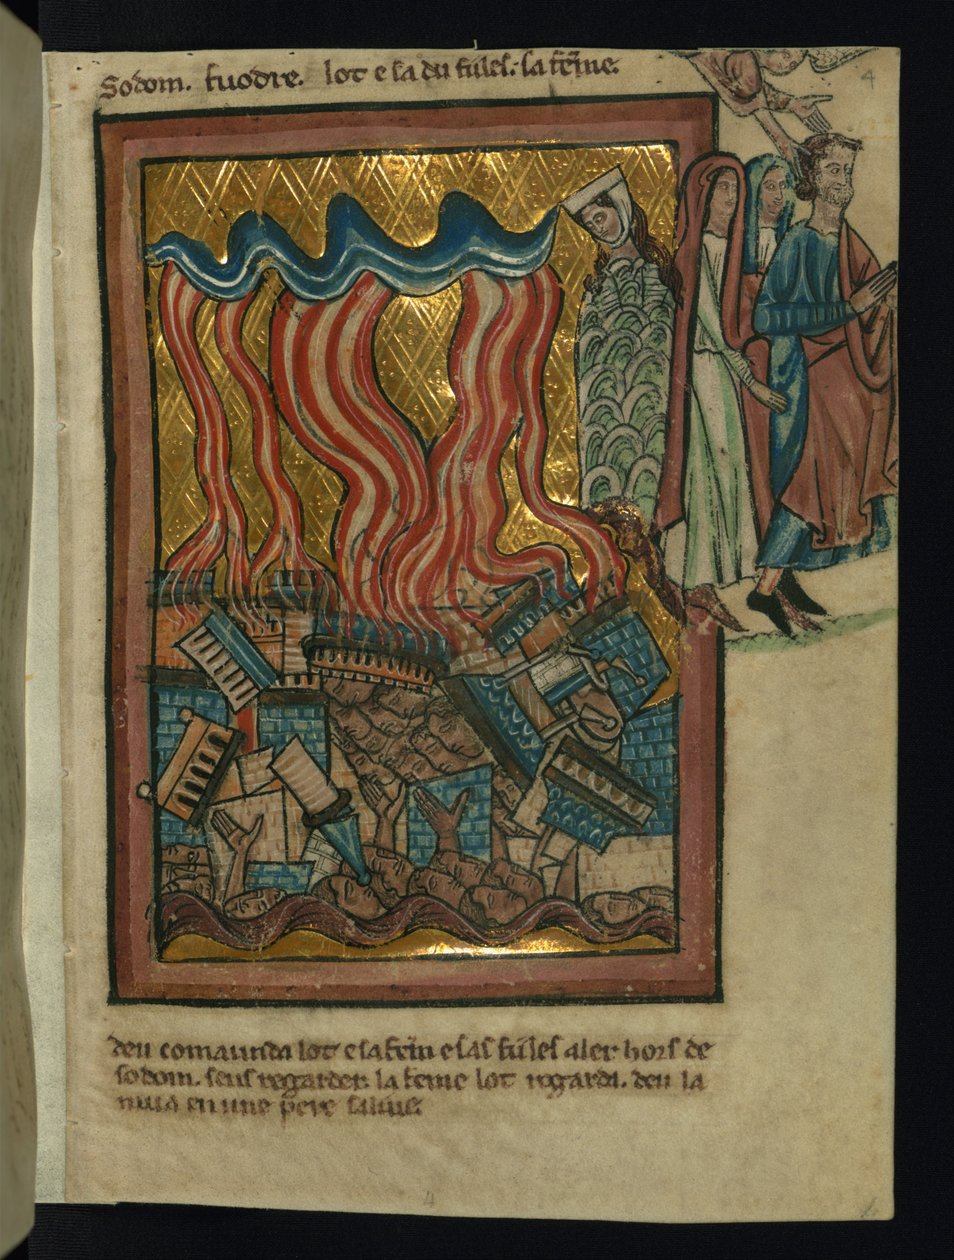 Sodom. fuodre. lot e sa du fules. sa feme. 4
deu comaunda lot e sa fem e sas fules aler hors de
sodom. seus regarder. la feme lot regarda. deu la
mua en une pere salius.